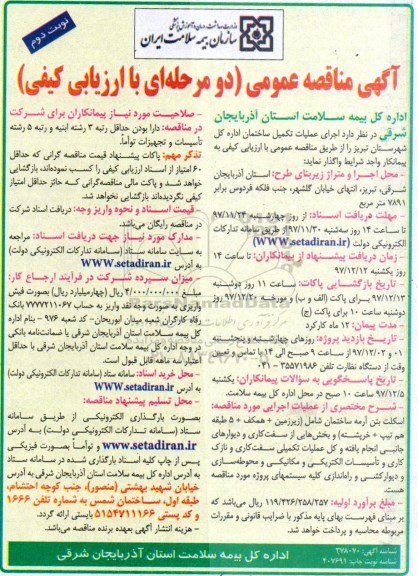 نوبت دوم
وزارت بهداشت، درمان و آموزش پزشکی
سازمان بیمه سلامت ایران
آگهی مناقصه عمومی (دو مرحله‌ای با ارزیابی کیفی)
اداره کل بیمه سلامت استان آذربایجان شرقی در نظر دارد اجرای عملیات تکمیل ساختمان اداره کل
شهرستان تبریز را از طریق مناقصه عمومی با ارزیابی کیفی به
پیمانکار واجد شرایط واگذار نماید:
- محل اجرا و متراژ زیربنای طرح: استان آذربایجان
شرقی، تبریز، انتهای خیابان گلشهر، جنب فلکه فردوس برابر
۷۸۹۱ متر مربع
- مهلت دریافت اسناد: از روز چهارشنبه ۹۷/۱۱/۲۴
تا ساعت ۱۴ روز سه‌شنبه ۹۷/۱۱/۳۰ از طریق سامانه تدارکات
الکترونیکی دولت (www.setadiran.ir)
- زمان دریافت پیشنهاد از پیمانکاران: تا ساعت ۱۴
روز یکشنبه ۹۷/۱۲/۱۲
- تاریخ بازگشایی پاکات: ساعت ۱۱ روز دوشنبه
۹۷/۱۲/۱۳ برای پاکت (الف و ب) و مورخه ۹۷/۱۲/۲۰ روز
دوشنبه ساعت ۱۰ برای پاکت (ج)
- مدت پیمان: ۱۲ ماه کارکرد
- تاریخ بازدید پروژه: روزهای چهارشنبه و پنجشنبه
۰۱ و ۹۷/۱۲/۰۲ از ساعت ۹ صبح الی ۱۴ با تماس و تعیین
وقت از دستگاه نظارت تلفن ۳۵۵۷۱۹۸۶ - ۰۴۱
- تاریخ پاسخگویی به سؤالات پیمانکاران: یکشنبه
۹۷/۱۲/۵ ساعت ۱۰ صبح در محل اداره کل بیمه سلامت.
- شرح مختصری از عملیات اجرایی مورد مناقصه:
اسکلت بتن آرمه ساختمان شامل (زیرزمین + همکف + ۵ طبقه
هم تیپ + خرپشته) و بخش‌هایی از سفت‌کاری و دیوارهای
جانبی انجام یافته و کل عملیات تکمیلی سفت‌کاری و نازک
کاری و تأسیسات الکتریکی و مکانیکی و محوطه‌سازی
و دیوارکشی و راه‌اندازی کلیه سیستمهای پروژه مورد مناقصه
هست.
- مبلغ برآورد اولیه: ۱۱۹/۳۲۶/۲۵۸/۲۵۷ ریال می‌باشد که
بر مبنای فهرست بهای پایه مذکور با ضرایب قانونی و مقررات
مربوطه محاسبه و پرداخت خواهد شد.
- صلاحیت مورد نیاز پیمانکاران برای شرکت
در مناقصه: دارا بودن حداقل رتبه ۳ رشته ابنیه و رتبه ۵ رشته
تأسیسات و تجهیزات توأماً.
تذکر مهم: پاکات پیشنهاد قیمت مناقصه گرانی که حداقل
۶۰ امتیاز از اسناد ارزیابی کیفی را کسب ننموده‌اند، بازگشایی
نخواهد شد و پاکت مالی مناقصه‌گرانی که حائز حداقل امتیاز
کیفی نگردیده‌اند بازگشایی نخواهد شد.
- قیمت اسناد و نحوه واریز وجه: دریافت اسناد شرکت
در مناقصه رایگان می‌باشد.
- مدارک مورد نیاز جهت دریافت اسناد: مراجعه
به سایت سامانه ستاد (سامانه تدارکات الکترونیکی دولت)
به آدرس www.setadiran.ir
- میزان سپرده شرکت در فرآیند ارجاع کار:
مبلغ ۴/۰۰۰/۰۰۰/۰۰۰ ریال (چهارمیلیارد ریال) بصورت فیش
واریزی به صورت وجه نقد واریز به حساب ۷۷۷۷۲۱۱۰۶۷ بانک
رفاه کارگران شعبه میدان ابوریحان- کد شعبه ۹۷۶ - بنام اداره
کل بیمه سلامت استان آذربایجان شرقی یا ضمانت‌نامه بانکی
در وجه اداره کل بیمه سلامت استان آذربایجان شرقی با حداقل
اعتبار سه ماهه قابل قبول است.
- محل خرید اسناد: سامانه ستاد (سامانه تدارکات الکترونیکی دولت)
به آدرس www.setadiran.ir
- محل تسلیم پیشنهاد مناقصه:
بصورت بارگذاری الکترونیکی از طریق سامانه
ستاد (سامانه تدارکات الکترونیکی دولت) به آدرس
www.setadiran.ir و توأماً بصورت فیزیکی
پس از چاپ کلیه اسناد بارگذاری شده در سامانه ستاد
به آدرس اداره کل بیمه سلامت استان آذربایجان شرقی به آدرس
خیابان شهید بهشتی (منصور)، جنب کوچه احتشام،
طبقه اول، ساختمان شمس به شماره تلفن ۱۶۶۶
و کد پستی ۵۱۵۴۷۱۱۱۶۶ بایستی ارائه گردد.
- هزینه انتشار آگهی بعهده برنده مناقصه می‌باشد.
شناسه آگهی: ۳۷۸۰۷۰
شناسه نوبت چاپ: ۴۰۷۶۹۱
اداره کل بیمه سلامت استان آذربایجان شرقی